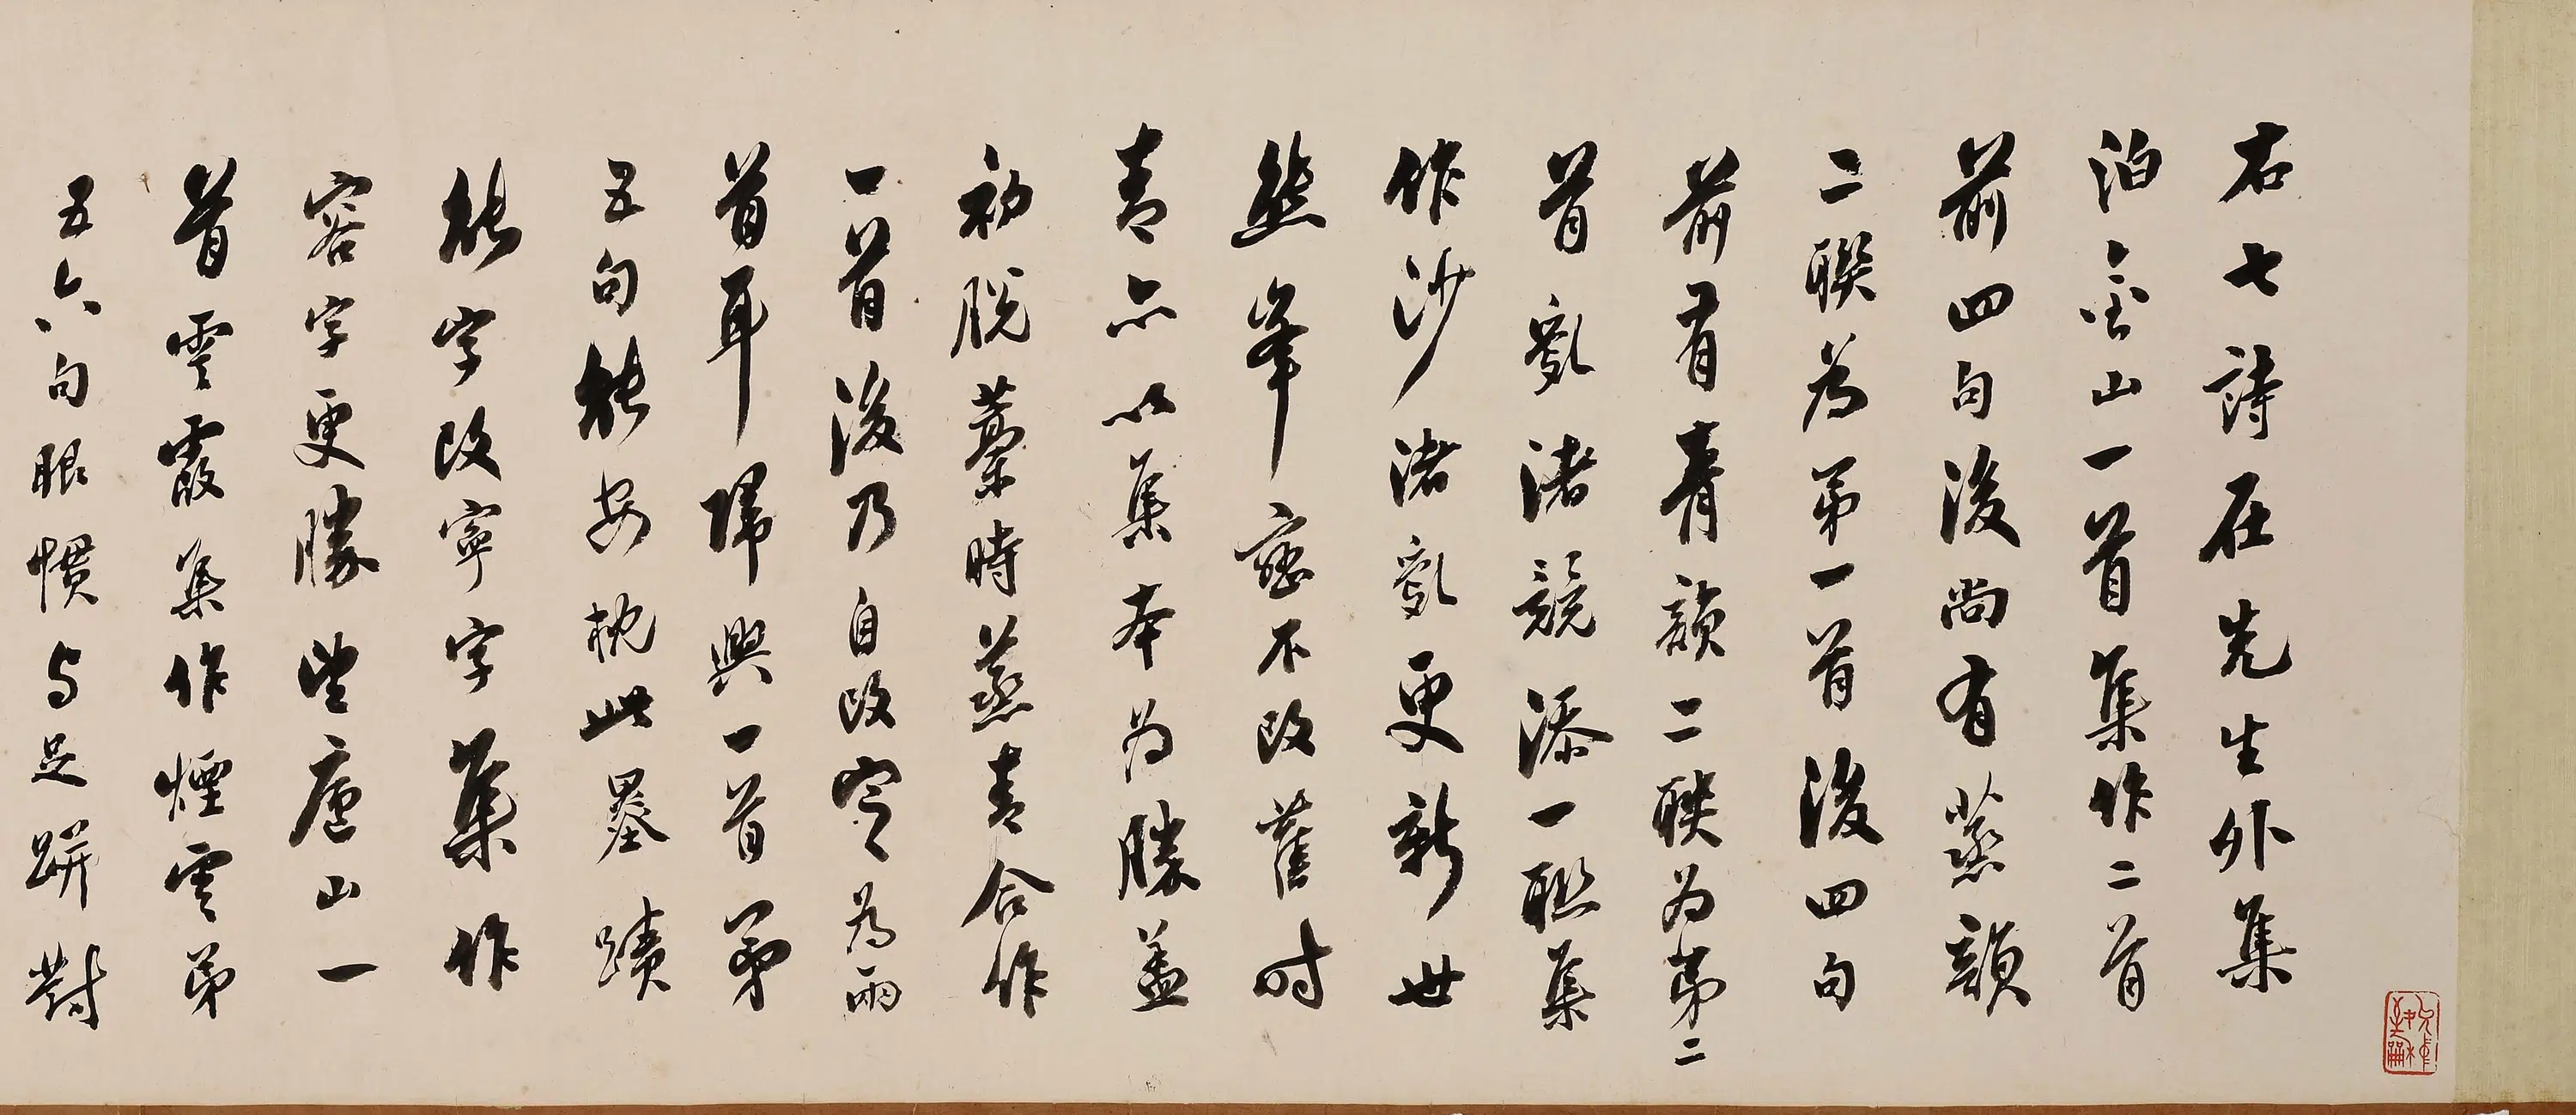 右七詩在先生外集
泊金山一首集作二首
前四句後尚有蒸韻
二聯為第一首後四句
前有青韻二聯為第二
首亂渚競添一聯集
作沙渚亂更新世
態峯巒不改舊时
青亦以集本为勝蓋
初脫藁時蒸青合作
一首後乃自改定為兩
首耳歸興一首第
五句能安枕此墨蹟
能字改寧字集作
容字更勝望廬山一
首雲霞集作煙雲第
五六句眼慣与足跰對